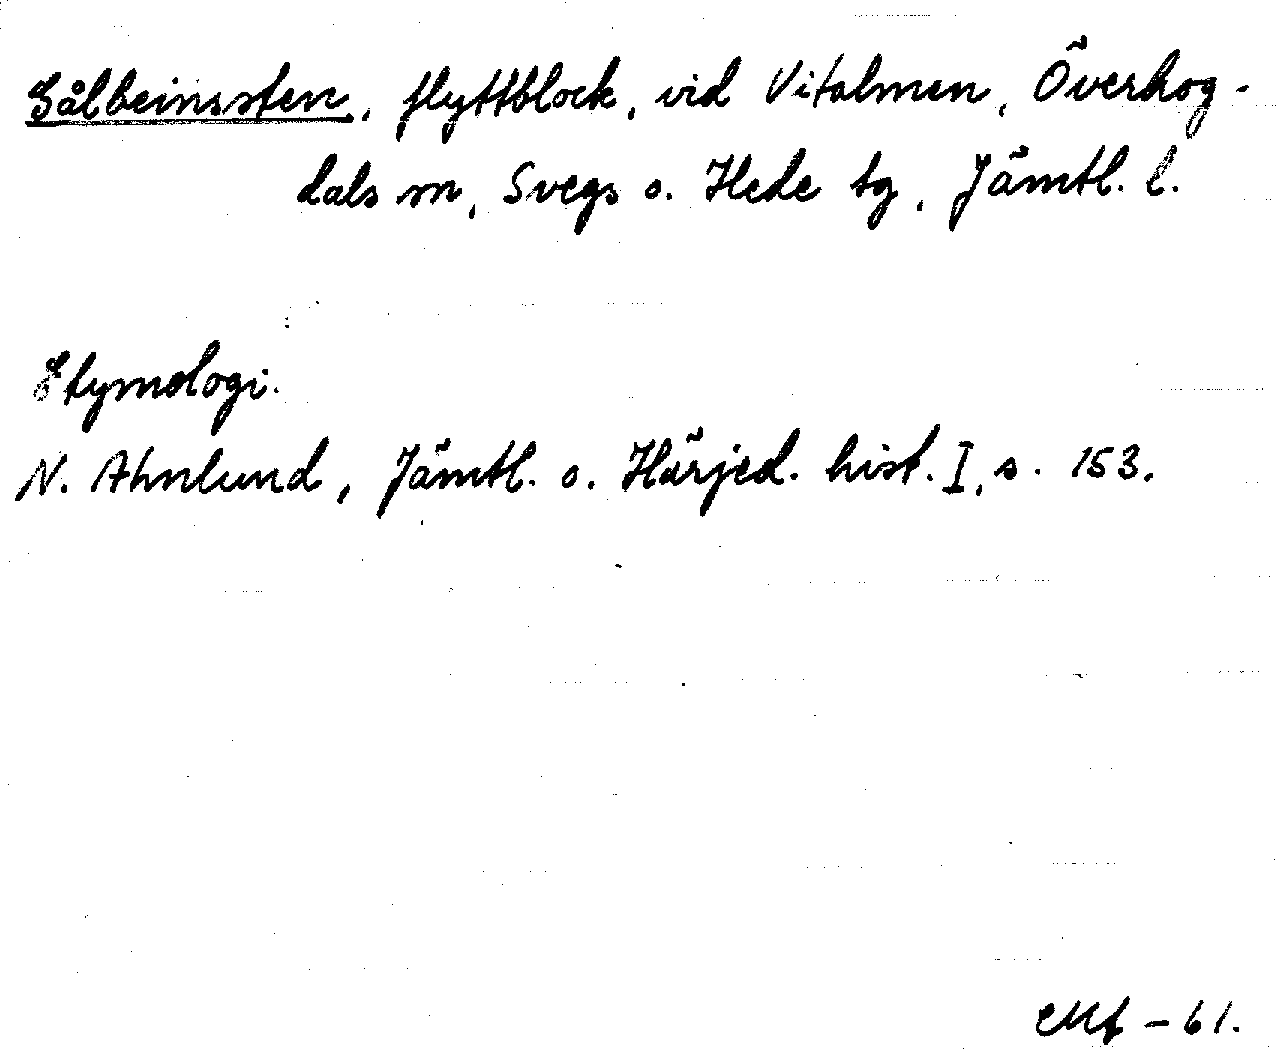 Sålbeinssten, flyttblock, vid Vitalmen, Överhog-
dals sn, Svegs o. Hede tg, Jämtl. l.
Etymologi.
N. Ahnlund, Jämtl. o. Härjed. hist. I, s. 153.
-61.